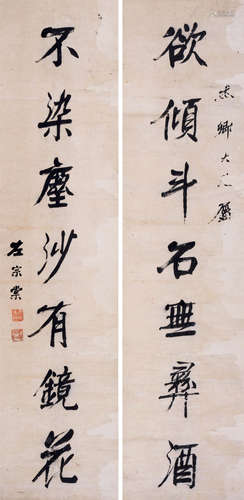 欲傾斗石無彝酒
卿大人屬
不染塵沙有鏡花
左宗棠